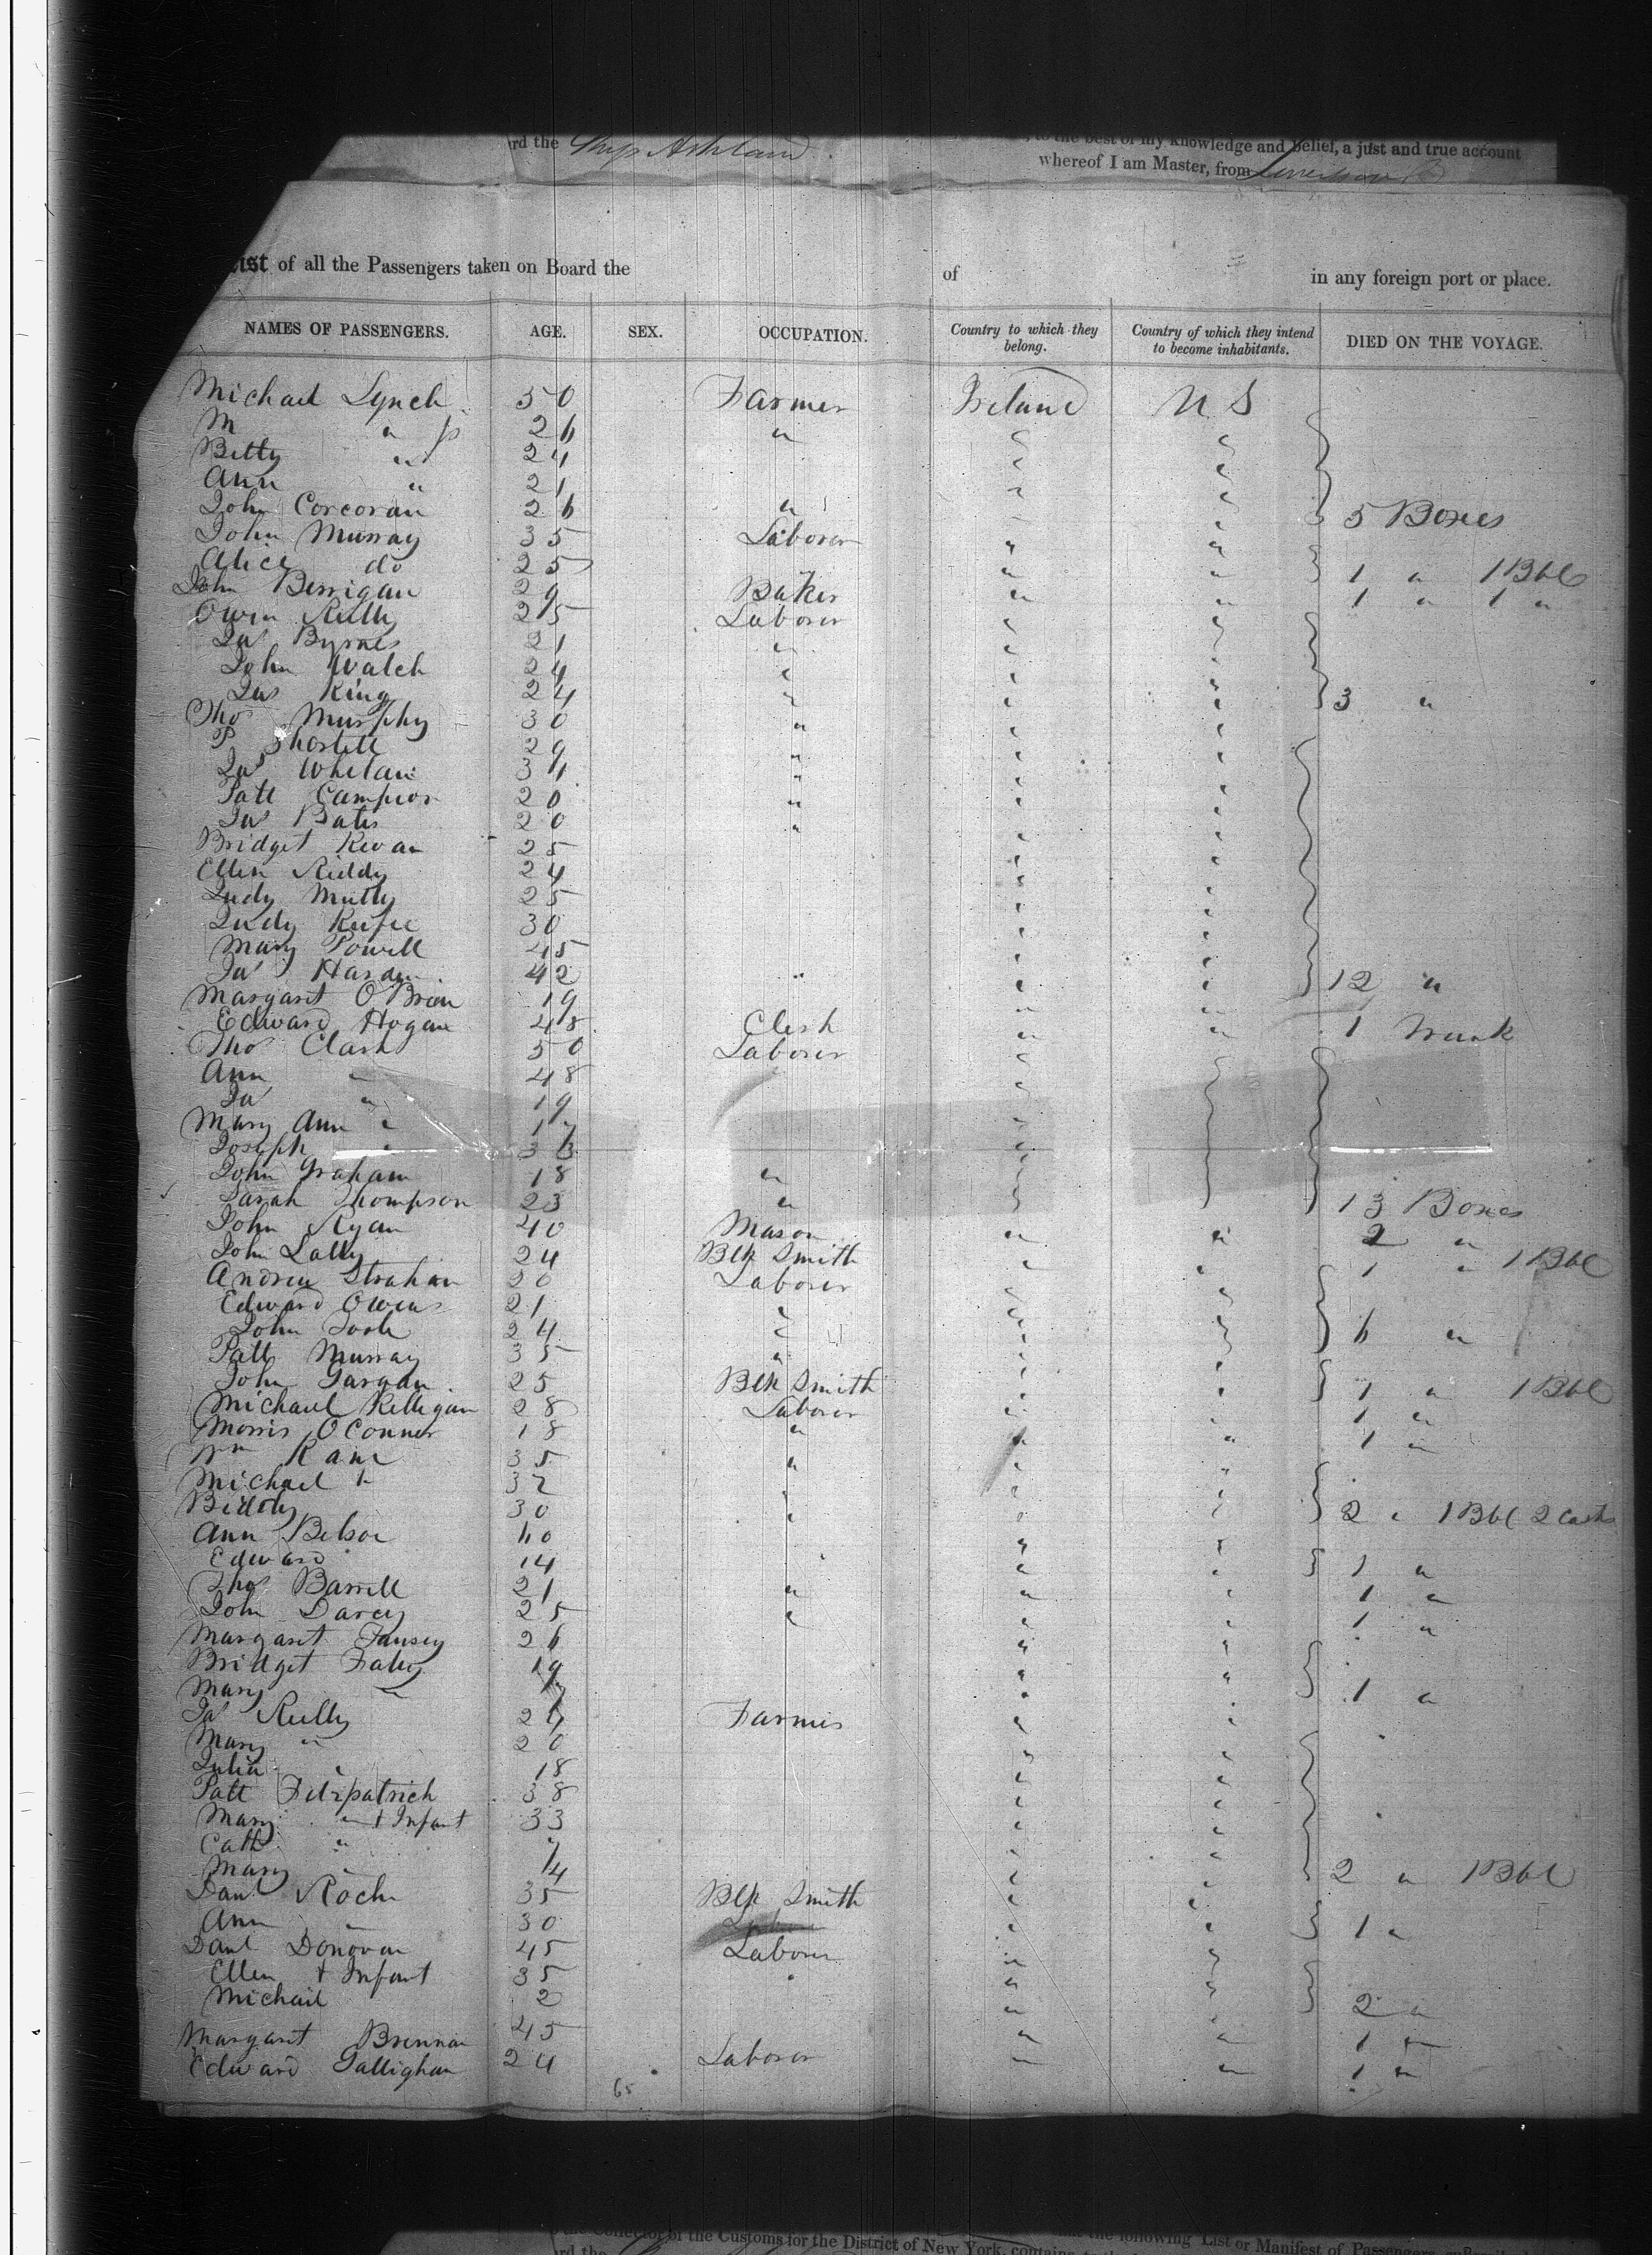 rd the Ship Ashland
to the best of my knowledge and belief, a just and true account
whereof I am Master, from Liverpool
List of all the Passengers taken on Board the of in any foreign port or place.
NAMES OF PASSENGERS. AGE. SEX. OCCUPATION. Country to which they belong. Country of which they intend to become inhabitants. DIED ON THE VOYAGE.
Michael Lynch 50 Farmer Ireland U S
M " 26 " " "
Betty " 24 " "
Ann " 21 " "
John Corcoran 26 " " " 5 Boxes
John Murray 35 Laborer " "
Alice do 25 " " 1 " 1 Bbl
John Berrigan 29 Baker " " 1 " 1 "
Owen Reilly 25 Laborer " "
Jas Byrnes 21 " " "
John Walch 24 " " "
Jas King 24 " " " 3 "
Thos Murphy 30 " " "
P 29 " " "
Jas Whelan 34 " " "
Patt Campion 20 " " "
Jas Bates 20 " " "
Bridget 25 " "
Ellen Riddy 24 " "
Judy 25 " "
Judy Keefee 30 " "
Mary Powell 45 " "
Jas Harden 42 " " " 12 "
Margaret O Brien 19 " "
Edward Hogan 48 Clerk " " 1 Trunk
Thos Clark 50 Laborer
Ann " 48
Jas " 19
Mary Ann " 17
Joseph "
John Graham 18 "
Sarah Thompson 23 " 13 Boxes
John Ryan 40 Mason " " 2 "
John Lally 24 Blk Smith " " 1 " 1 Bbl
Andrew Strahan 20 Laborer " "
Edward Owens 21 " " "
John 24 " " " 6 "
Patt Murray 35 " " "
John Gargan 25 Blk Smith " " 1 " 1 Bbl
Michael Kelligan 28 Laborer " " 1 "
Morris O Conner 18 " " " 1 "
Wm Kane 35 " " "
Michael " 32 " " "
Biddy 30 " " " 2 " 1 Bbl 2 Casks
Ann 40 " "
Edward 14 " " 1 "
Thos Barrell 21 " " " 1 "
John Darcy 25 " " " 1 "
Margaret 26 " "
Bridget Fahey 19 " "
Mary " " " 1 "
Jas Reilly Farmer " "
Mary " 20 " "
Julia " 18 " "
Patt Fitzpatrick 38 " "
Mary " + Infant 33 " "
Cath " 7 " "
Mary " 4 " " 2 " 1 Bbl
Danl Roche 35 Blk Smith " "
Ann " 30 " " 1 "
Danl Donovan 45 Laborer " "
Ellen + Infant 35 " "
Michail 2 " " 2 "
Margaret Brennan 45 " " 1 "
Edward Gallighan 24 Laborer " " 1 "
65
the Collector of the Customs for the District of New York, contains
the following List or Manifest of Passengers
rd the